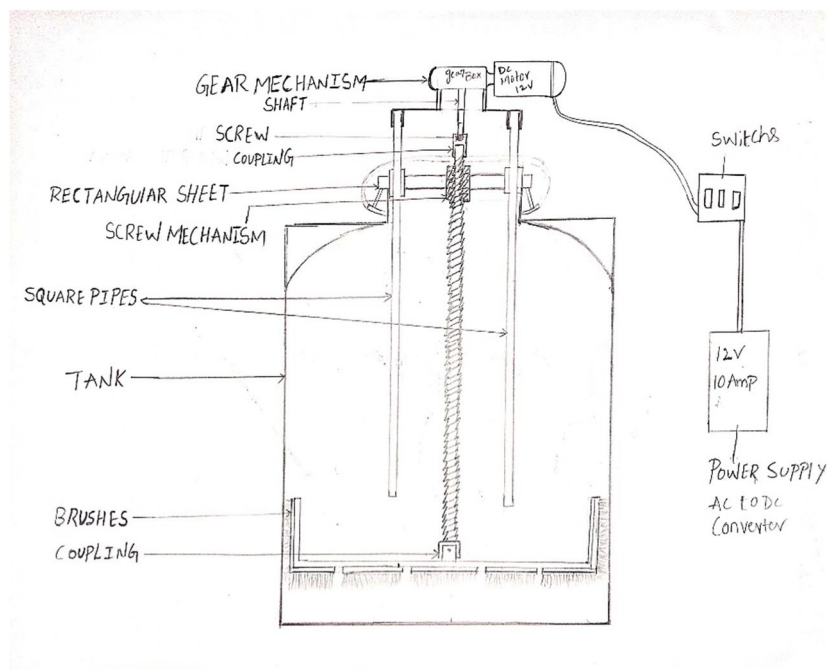 GEAR MECHANISM
gear Box
DC
Motor
12V
SHAFT
SCREW
COUPLING
RECTANGULAR SHEET
SCREW MECHANISM
SQUARE PIPES
TANK
BRUSHES
COUPLING
Switchs
12V
10 Amp
POWER SUPPLY
AC to DC
Converter